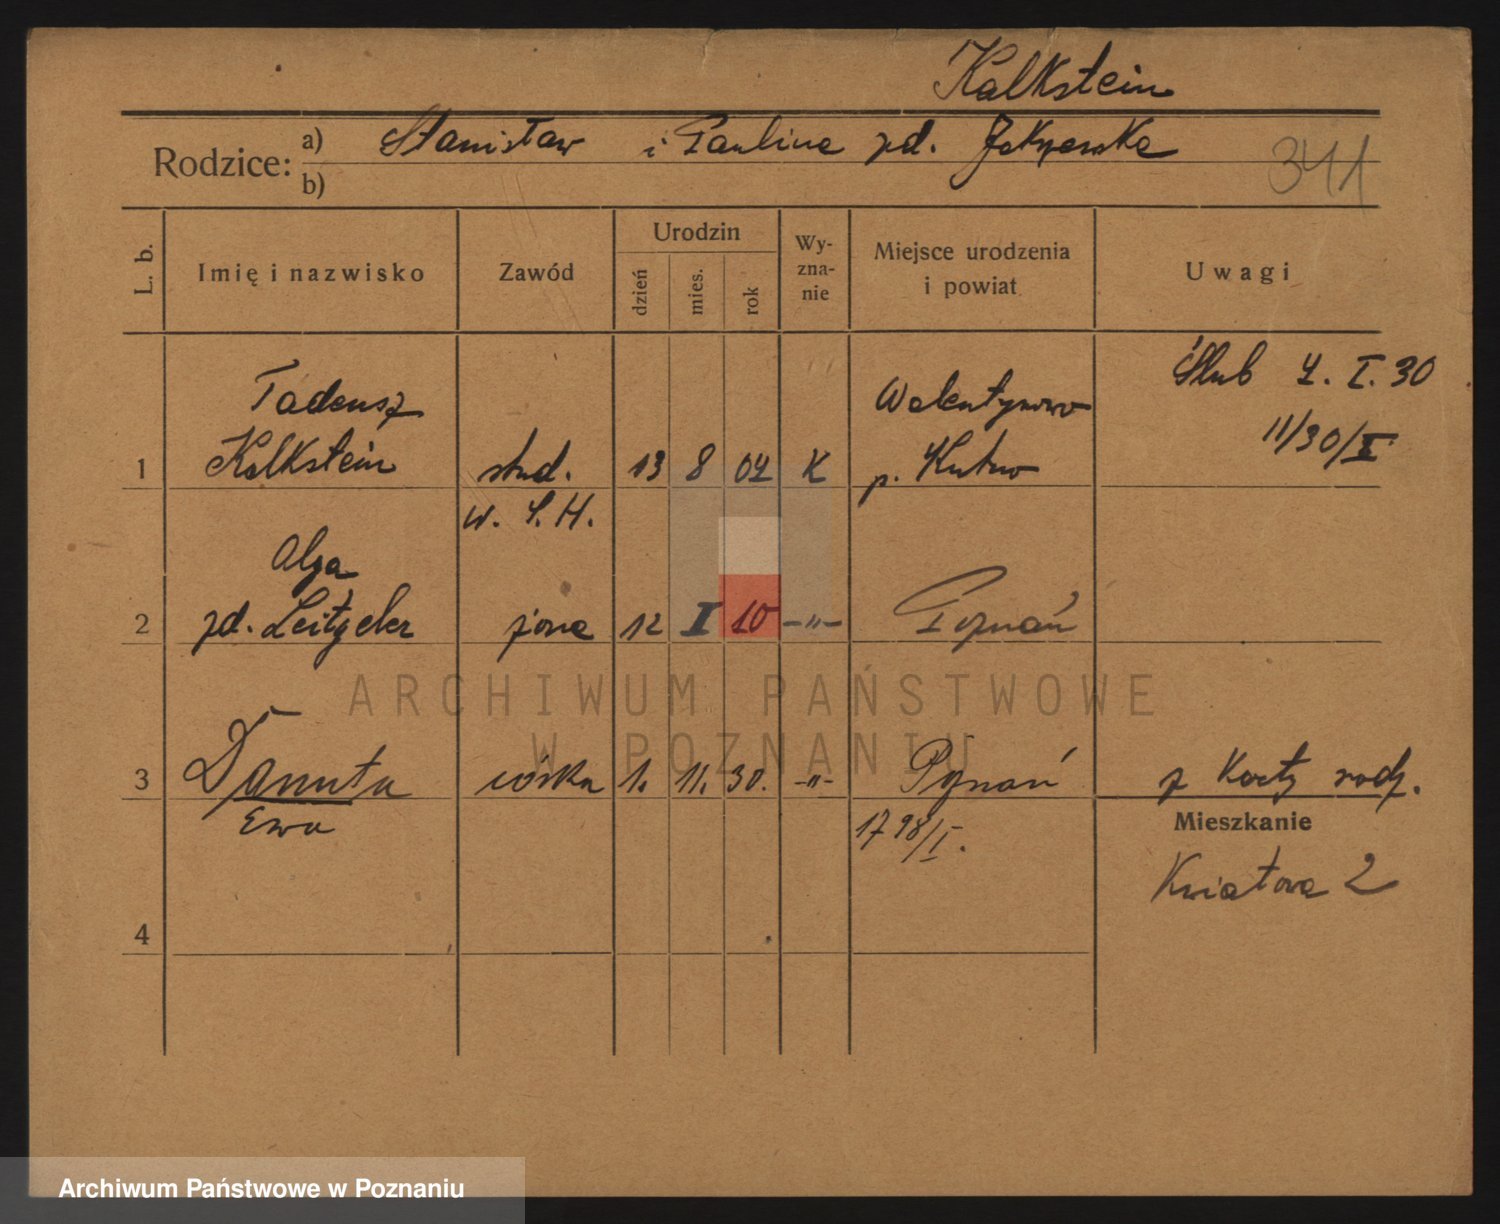 Kalkstein
Rodzice: a) Stanisław i Paulina zd.
b)
341
L. b.
Imię i nazwisko
Zawód
Urodzin
dzień
mies.
rok
Wy-
zna-
nie
Miejsce urodzenia
i powiat
Uwagi
Tadeusz Walentynowo Ślub 4. I. 30
1 Kalkstein stud. 13 8 04 K p. Kutno 11/30/X
w. S. H.
Olga
2 zd. Leitgeber żona 12 I 10 -"- Poznań
ARCHIWUM PAŃSTWOWE
W POZNANIU
3 Danuta córka 1. 11. 30. -"- Poznań z karty rodz.
Ewa 1798/I.
Mieszkanie
Kwiatowa 2
4
Archiwum Państwowe w Poznaniu